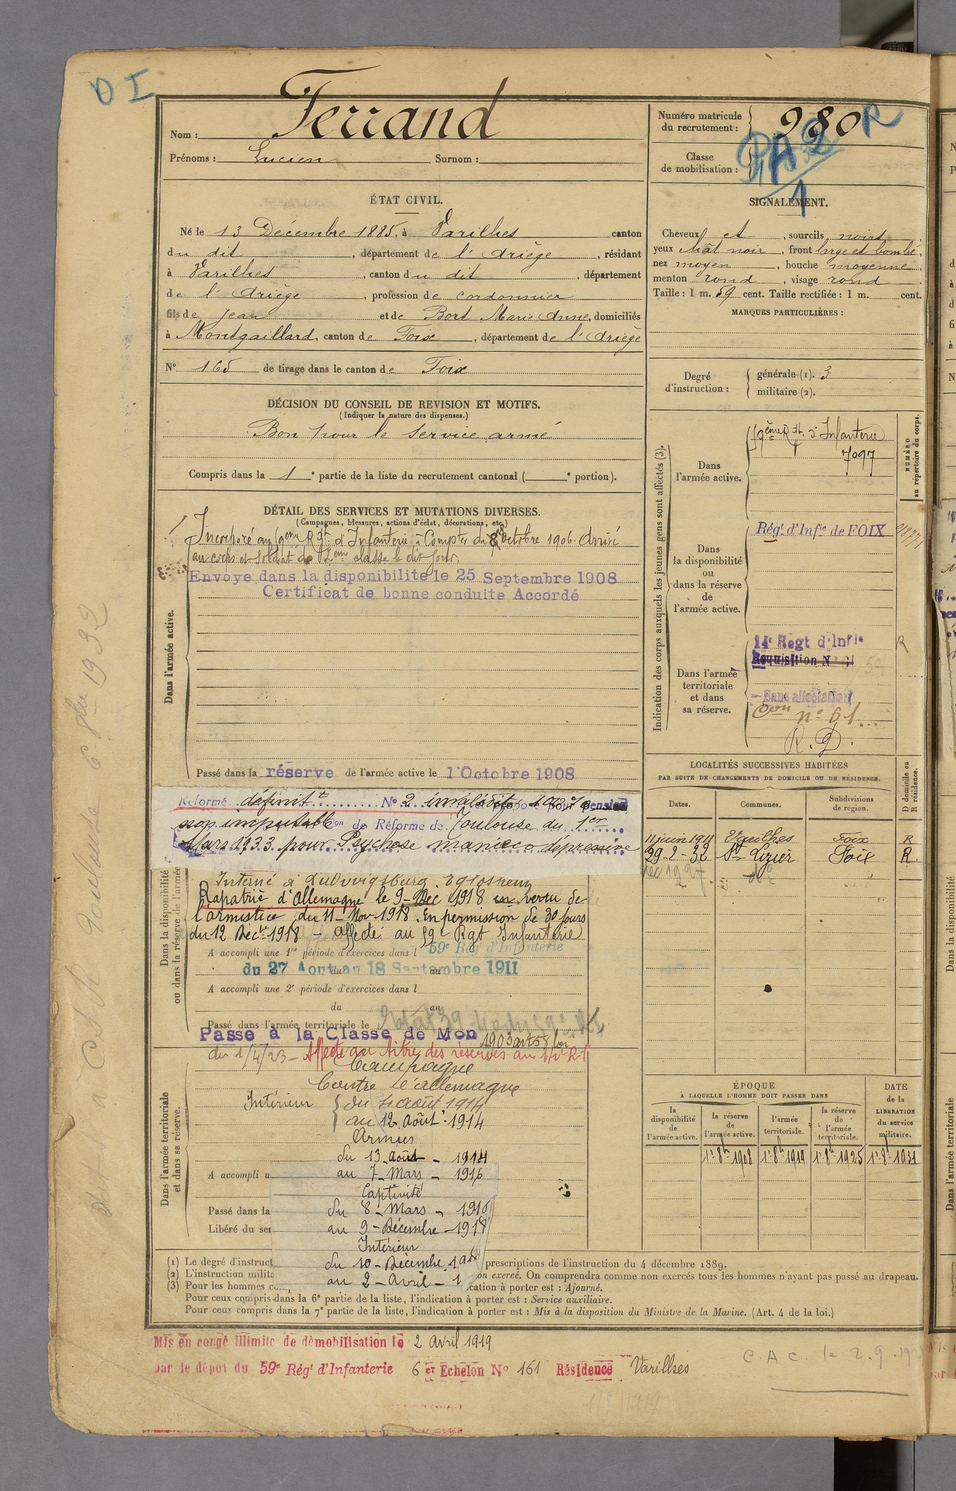 O I
Nom : Ferrand
Prénoms : Lucien Surnom :
ÉTAT CIVIL.
Né le 13 Décembre 1885, à Varilhes canton
du dit , département de l'Ariège , résidant
à Varilhes , canton du dit , département
de l'Ariège , profession de cordonnier
fils de Jean et de Bort Marie Anne, domiciliés
à Montgaillard, canton de Foix , département de l'Ariège
N° 165 de tirage dans le canton de Foix
DÉCISION DU CONSEIL DE REVISION ET MOTIFS.
(Indiquer la nature des dispenses.)
Bon pour le service armé
Compris dans la 1e partie de la liste du recrutement cantonal ( e portion).
DÉTAIL DES SERVICES ET MUTATIONS DIVERSES.
(Campagnes, blessures, actions d'éclat, décorations, etc.)
Incorporé au 9ème Rgt d'Infanterie à Compter du 8 octobre 1906. Arrivé
au corps et Soldat de 2ème classe le dit jour.
Envoye dans la disponibilite le 25 Septembre 1908
Certificat de bonne conduite Accordé
Dans l'armée active.
Passé dans la réserve de l'armée active le 1 Octobre 1908
Réformé définitt N° 2 invalidité
non imputable on de Réforme de Toulouse du 1er
Mars 1933 pour Psychose maniaco dépressive
Dans la disponibilité
ou dans la réserve de l'armée
Interné à Ludwigsburg Eglosheim
Rapatrié d'Allemagne le 9 Déc 1918 en vertu de
l'armistice du 11 Nov 1918. En permission de 30 jours
du 12 Dec 1918 - affecté au 59e Rgt Infanterie
A accompli une 1re période d'exercices dans l 59e Rég d'Infanterie
du 27 Aout au 18 Septembre 1911
A accompli une 2e période d'exercices dans l
du au
Passé dans l'armée territoriale le
Passé à la Classe de Mon 1903
du 1/4/23 - Affecté au titre des réserves au
Dans l'armée territoriale
et dans sa réserve.
Campagne
Contre l'Allemagne
Intérieur { du 4 août 1914
au 12 Août 1914
Armées
du 13 Août - 1914
A accompli u au 7 Mars - 1916
Captivité
Passé dans la du 8 - Mars - 1916
Libéré du ser au 9 - Décembre - 1918
Intérieur
du 10 - Décembre. 1918
au 2 - Avril - 1
(1) Le degré d'instruct prescriptions de l'instruction du 4 décembre 1889.
(2) L'instruction milita on exercé. On comprendra comme non exercés tous les hommes n'ayant pas passé au drapeau.
(3) Pour les hommes co cation à porter est : Ajourné.
Pour ceux compris dans la 6e partie de la liste, l'indication à porter est : Service auxiliaire.
Pour ceux compris dans la 7e partie de la liste, l'indication à porter est : Mis à la disposition du Ministre de la Marine. (Art. 4 de la loi.)
Mis en congé illimité de démobilisation le 2 Avril 1919
par le dépot du 59e Rég d'Infanterie 6 er Echelon N° 161 Résidence Varilhes
C A C le 2.9.19
Numéro matricule
du recrutement : 980 R
Classe
de mobilisation :
1
SIGNALEMENT.
Cheveux et , sourcils noirs
yeux chât noir , front large et bombé,
nez moyen , bouche moyenne
menton rond , visage rond
Taille : 1 m. 59 cent. Taille rectifiée : 1 m. cent.
MARQUES PARTICULIÈRES :
Degré
d'instruction :
générale (1). 3
militaire (2).
Indication des corps auxquels les jeunes gens sont affectés (3).
NUMÉRO
au répertoire du corps.
Dans
l'armée active.
9ème Rgt d'Infanterie
7097
Dans
la disponibilité
ou
dans la réserve
de
l'armée active.
Régt d'Infie de FOIX
Dans l'armée
territoriale
et dans
sa réserve.
14e Regt d'Infie
Requisition N°
Sans affectation
n° 61
R. D.
R
LOCALITÉS SUCCESSIVES HABITÉES
PAR SUITE DE CHANGEMENTS DE DOMICILE OU DE RÉSIDENCE.
D domicile ou
R résidence.
Dates. Communes. Subdivisions
de région.
11 juin 1911 Varilhes Foix R
29-2-32 St Lizier Foix R.
ÉPOQUE
À LAQUELLE L'HOMME DOIT PASSER DANS
la
disponibilité
de
l'armée active.
la réserve
de
l'armée active.
l'armée
territoriale.
la réserve
de
l'armée
territoriale.
DATE
de la
LIBÉRATION
du service
militaire.
1r 8bre 1908 1r 8bre 1919 1r 8bre 1925 1r 8bre 1931